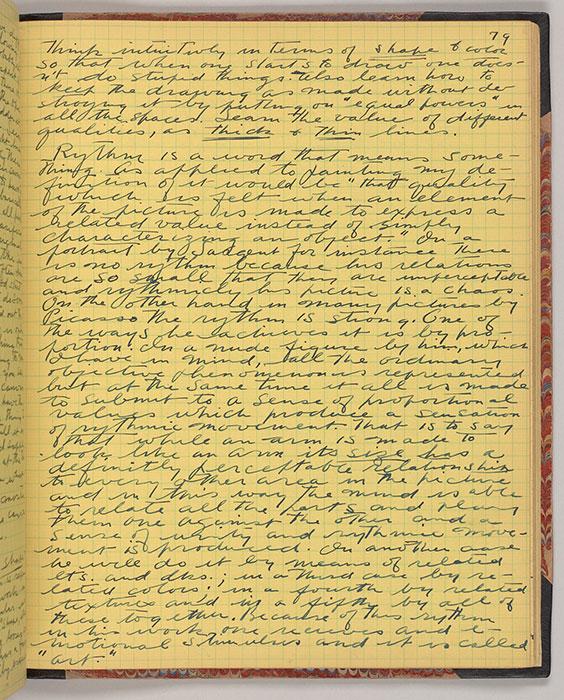 79
Think intuitively in terms of shape & color
so that when one starts to draw one does-
n't do stupid things. Also learn how to
keep the drawing as made without de
stroying it by putting on "equal powers" in
all the spaces. Learn the value of different
qualities, as thick & thin lines.
Rythm is a word that means some-
thing. As applied to painting my de-
finition of it would be "that quality
which is felt when an element
of the picture is made to express a
related value instead of simply
characterizing an object." In a
portrait by Sargent for instance there
is no rythm because his relations
are so small that they are imperceptable
and rythmically his picture is a chaos.
On the other hand in many pictures by
Picasso the rythm is strong. One of
the ways he achieves it is by pro-
portion. In a nude figure by him, which
I have in mind, all the ordinary
objective phenomenon is represented
but at the same time it all is made
to submit to a sense of proportional
values which produce a sensation
of rythmic movement. That is to say
that while an arm is made to
look like an arm its size has a
definitly perceptable relationship
to every other area in the picture
and in this way the mind is able
to relate all the parts and play
them one against the other and a
sense of unity and rythmic move-
ment is produced. In another case
he will do it by means of related
lts. and dks.; in a third case by re-
lated colors; in a fourth by related
textures and in a fifth by all of
these together. Because of this rythm
in his work one receives and e-
motional stimulus and it is called
"art."